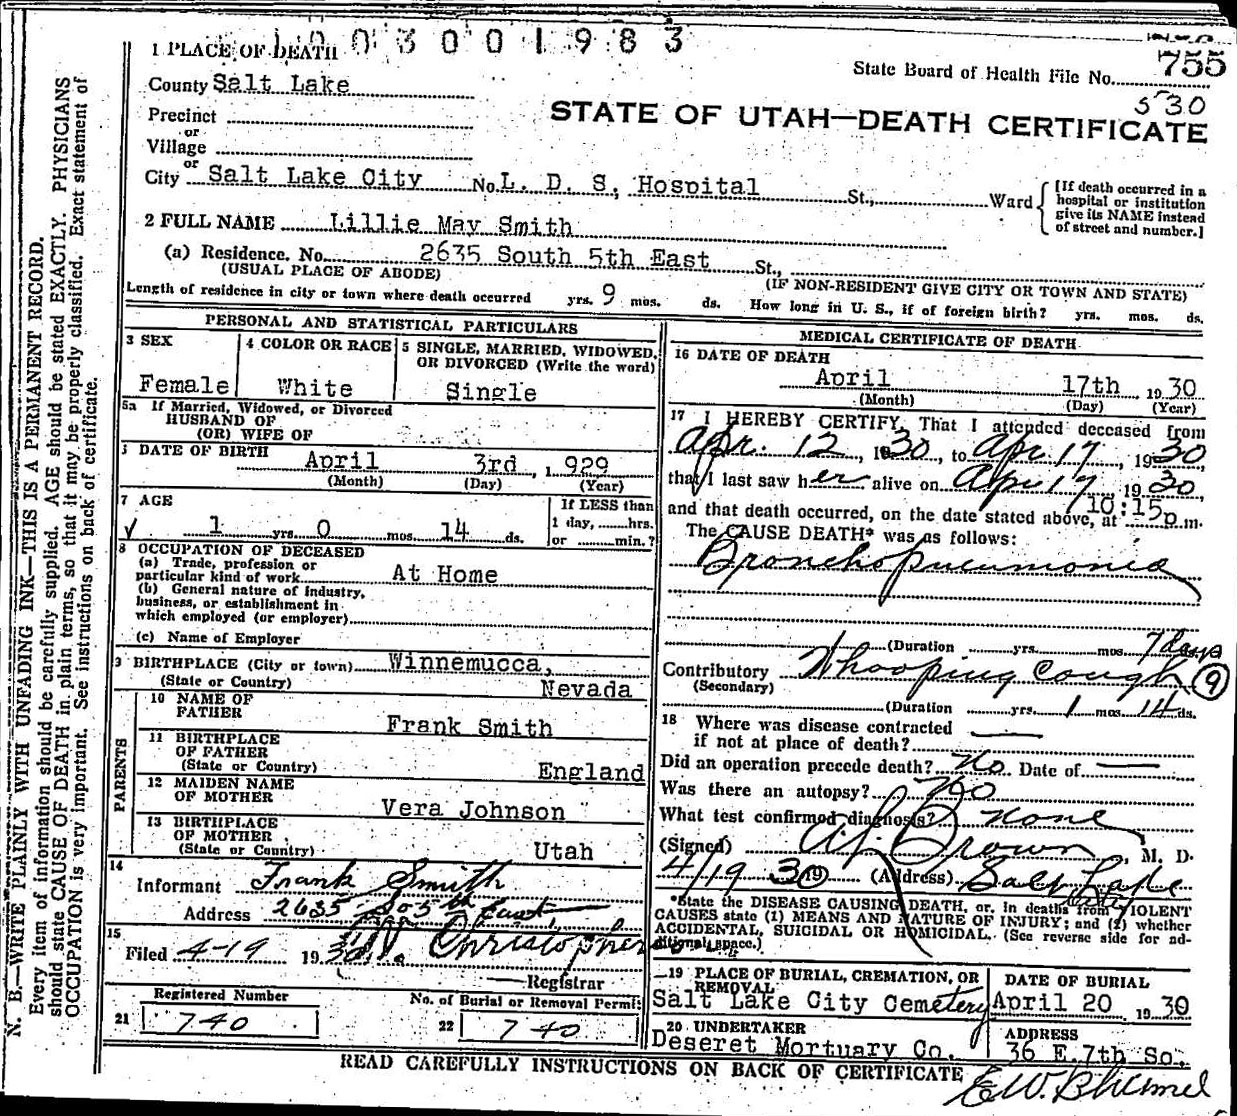 1 PLACE OF DEATH 003001983
State Board of Health File No. 755
County Salt Lake
530
STATE OF UTAH—DEATH CERTIFICATE
Precinct
or
Village
or
City Salt Lake City No. L. D. S. Hospital St., Ward
[If death occurred in a
hospital or institution
give its NAME instead
of street and number.]
2 FULL NAME Lillie May Smith
(a) Residence. No. 2635 South 5th East St.,
(USUAL PLACE OF ABODE) (IF NON-RESIDENT GIVE CITY OR TOWN AND STATE)
Length of residence in city or town where death occurred yrs. 9 mos. ds. How long in U. S., if of foreign birth? yrs. mos. ds.
PERSONAL AND STATISTICAL PARTICULARS
3 SEX
Female
4 COLOR OR RACE
White
5 SINGLE, MARRIED, WIDOWED,
OR DIVORCED (Write the word)
Single
5a If Married, Widowed, or Divorced
HUSBAND OF
(OR) WIFE OF
DATE OF BIRTH April 3rd, 1929
(Month) (Day) (Year)
7 AGE
1 yrs. 0 mos. 14 ds.
If LESS than
1 day, hrs.
or min.?
8 OCCUPATION OF DECEASED
(a) Trade, profession or
particular kind of work At Home
(b) General nature of industry,
business, or establishment in
which employed (or employer)
(c) Name of Employer
9 BIRTHPLACE (City or town) Winnemucca,
(State or Country) Nevada
PARENTS
10 NAME OF
FATHER Frank Smith
11 BIRTHPLACE
OF FATHER
(State or Country) England
12 MAIDEN NAME
OF MOTHER Vera Johnson
13 BIRTHPLACE
OF MOTHER
(State or Country) Utah
14
Informant Frank Smith
Address 2635 So 5th East
15
Filed 4-19 1930 Christopherson
Registrar
Registered Number
21 740
No. of Burial or Removal Permit
22 740
MEDICAL CERTIFICATE OF DEATH
16 DATE OF DEATH
April 17th 1930
(Month) (Day) (Year)
17 I HEREBY CERTIFY, That I attended deceased from
Apr. 12, 1930, to Apr 17, 1930
that I last saw her alive on Apr 17, 1930,
and that death occurred, on the date stated above, at 10:15 p.m.
The CAUSE DEATH* was as follows:
Bronchopneumonia
(Duration yrs. mos. 7 days
Contributory Whooping Cough 9
(Secondary)
(Duration yrs. 1 mos. 14 ds.
18 Where was disease contracted
if not at place of death? —
Did an operation precede death? No. Date of —
Was there an autopsy? No
What test confirmed diagnosis? None
(Signed) A. J. Brown, M. D.
4/19 30 19 (Address) Salt Lake City
*State the DISEASE CAUSING DEATH, or, in deaths from VIOLENT
CAUSES state (1) MEANS AND NATURE OF INJURY; and (2) whether
ACCIDENTAL, SUICIDAL OR HOMICIDAL. (See reverse side for ad-
ditional space.)
19 PLACE OF BURIAL, CREMATION, OR
REMOVAL
Salt Lake City Cemetery
DATE OF BURIAL
April 20 1930
20 UNDERTAKER
Deseret Mortuary Co.
ADDRESS
36 E. 7th So.
READ CAREFULLY INSTRUCTIONS ON BACK OF CERTIFICATE
N. B.—WRITE PLAINLY WITH UNFADING INK—THIS IS A PERMANENT RECORD.
Every item of information should be carefully supplied. AGE should be stated EXACTLY. PHYSICIANS
should state CAUSE OF DEATH in plain terms, so that it may be properly classified. Exact statement of
OCCUPATION is very important. See instructions on back of certificate.